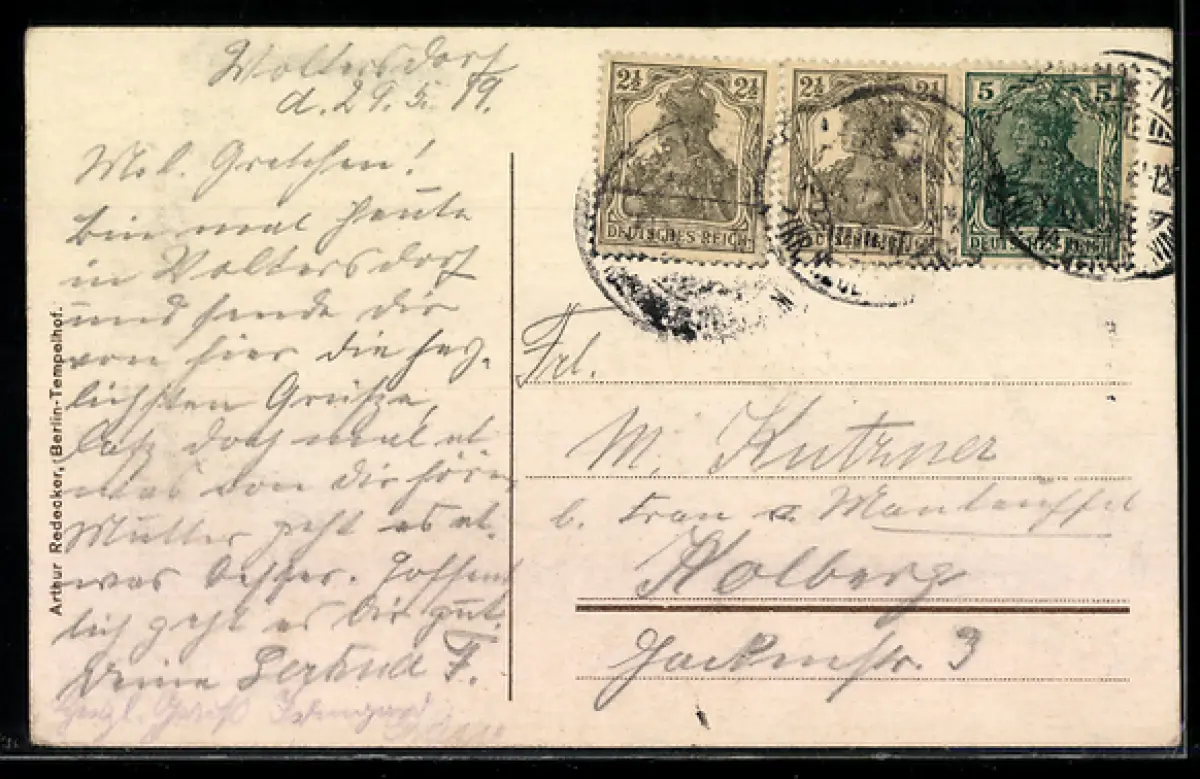 Woltersdorf
d. 29. 5. 19.
Mel. Gretchen!
Bin mal heute
in Woltersdorf
und sende dir
von hier die herz-
lichsten Grüße,
laß doch mal et
was von dir hören,
Mutter geht es et-
was besser. Hoffent
lich geht es Dir gut.
Deine Gertrud F.
Herzl. Gruß
Arthur Redecker, (Berlin-Tempelhof.
2½ 2½
DEUTSCHES REICH
2½ 2½
DEUTSCHES REICH
5 5
DEUTSCHES REICH
Frl.
M. Kutzner
b. Frau v. Manteuffel
Kolberg
3